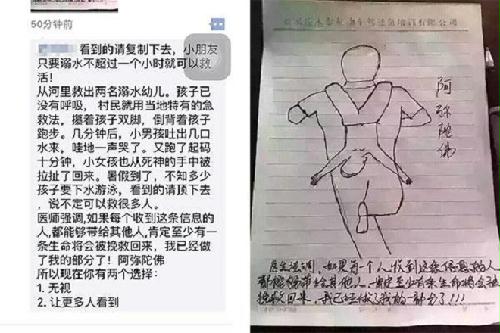 50分钟前
看到的请复制下去，小朋友
只要溺水不超过一个小时就可以救
活！
从河里救出两名溺水幼儿。孩子已
没有呼吸， 村民就用当地特有的急
救法。攥着孩子双脚，倒背着孩子
跑步。几分钟后，小男孩吐出几口
水来，哇地一声哭了。又跑了起码
十分钟，小女孩也从死神的手中被
拉扯了回来。暑假到了，不知多少
孩子要下水游泳，看到的请顶下去
，说不定可以救很多人。
医师强调,如果每个收到这条信息的
人,都能够带给其他人,肯定至少有一
条生命将会被挽救回来，我已经做
了我的部分了！阿弥陀佛
所以现在你有两个选择：
1. 无视
2. 让更多人看到
阿弥陀佛
医生强调，如果每个人收到这条信息的人
都能够带给其他人，肯定至少有一条生命将会被
挽救回来，我已经做了我的一部分了!!!